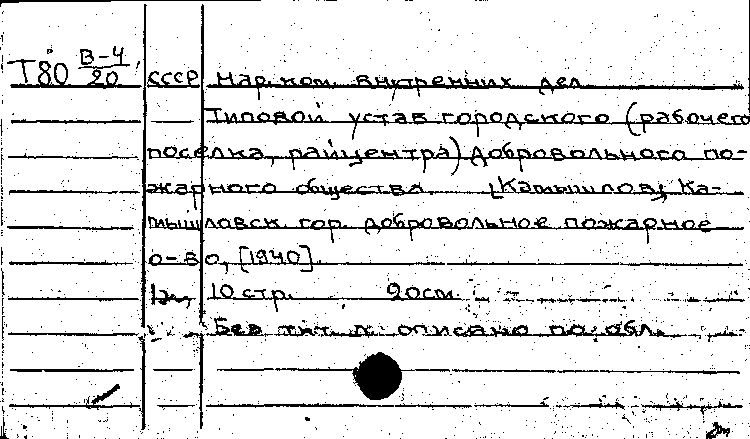 Т80 В-4/20 СССР Нар. ком. внутренних дел
Типовой устав городского (рабочего
поселка, райцентра) добровольного по-
жарного общества. [Камышлов], Ка-
мышловск. гор. добровольное пожарное
о-во, [1940].
10 стр. 20 см.
Без тит. л. описано по обл.